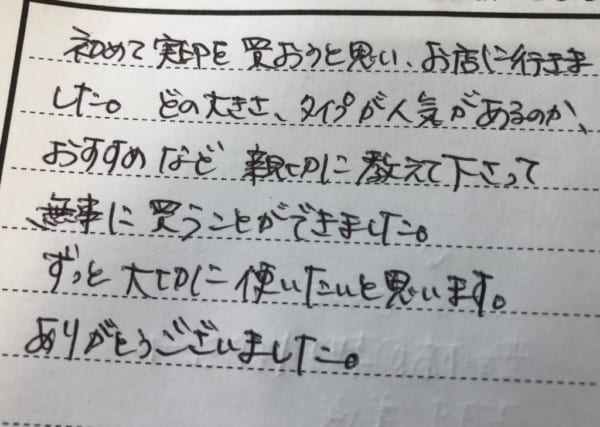 初めて実印を買おうと思い、お店に行きま
した。どの大きさ、タイプが人気があるのか、
おすすめなど親切に教えて下さって
無事に買うことができました。
ずっと大切に使いたいと思います。
ありがとうございました。